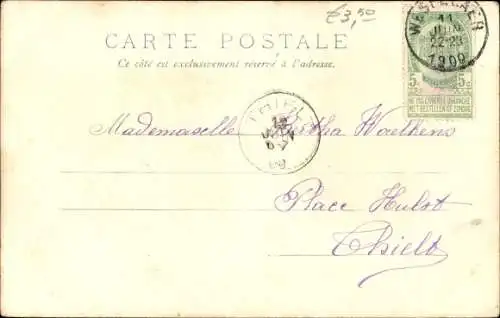 €3,50
CARTE POSTALE
Ce côté est exclusivement réservé à l'adresse.
11
JUIN
22-23
1899
5c 5c
NE PAS LIVRER LE DIMANCHE
NIET BESTELLEN OP ZONDAG
THIELT
12
Mademoiselle Bertha Waelkens
Place Hulst
Thielt